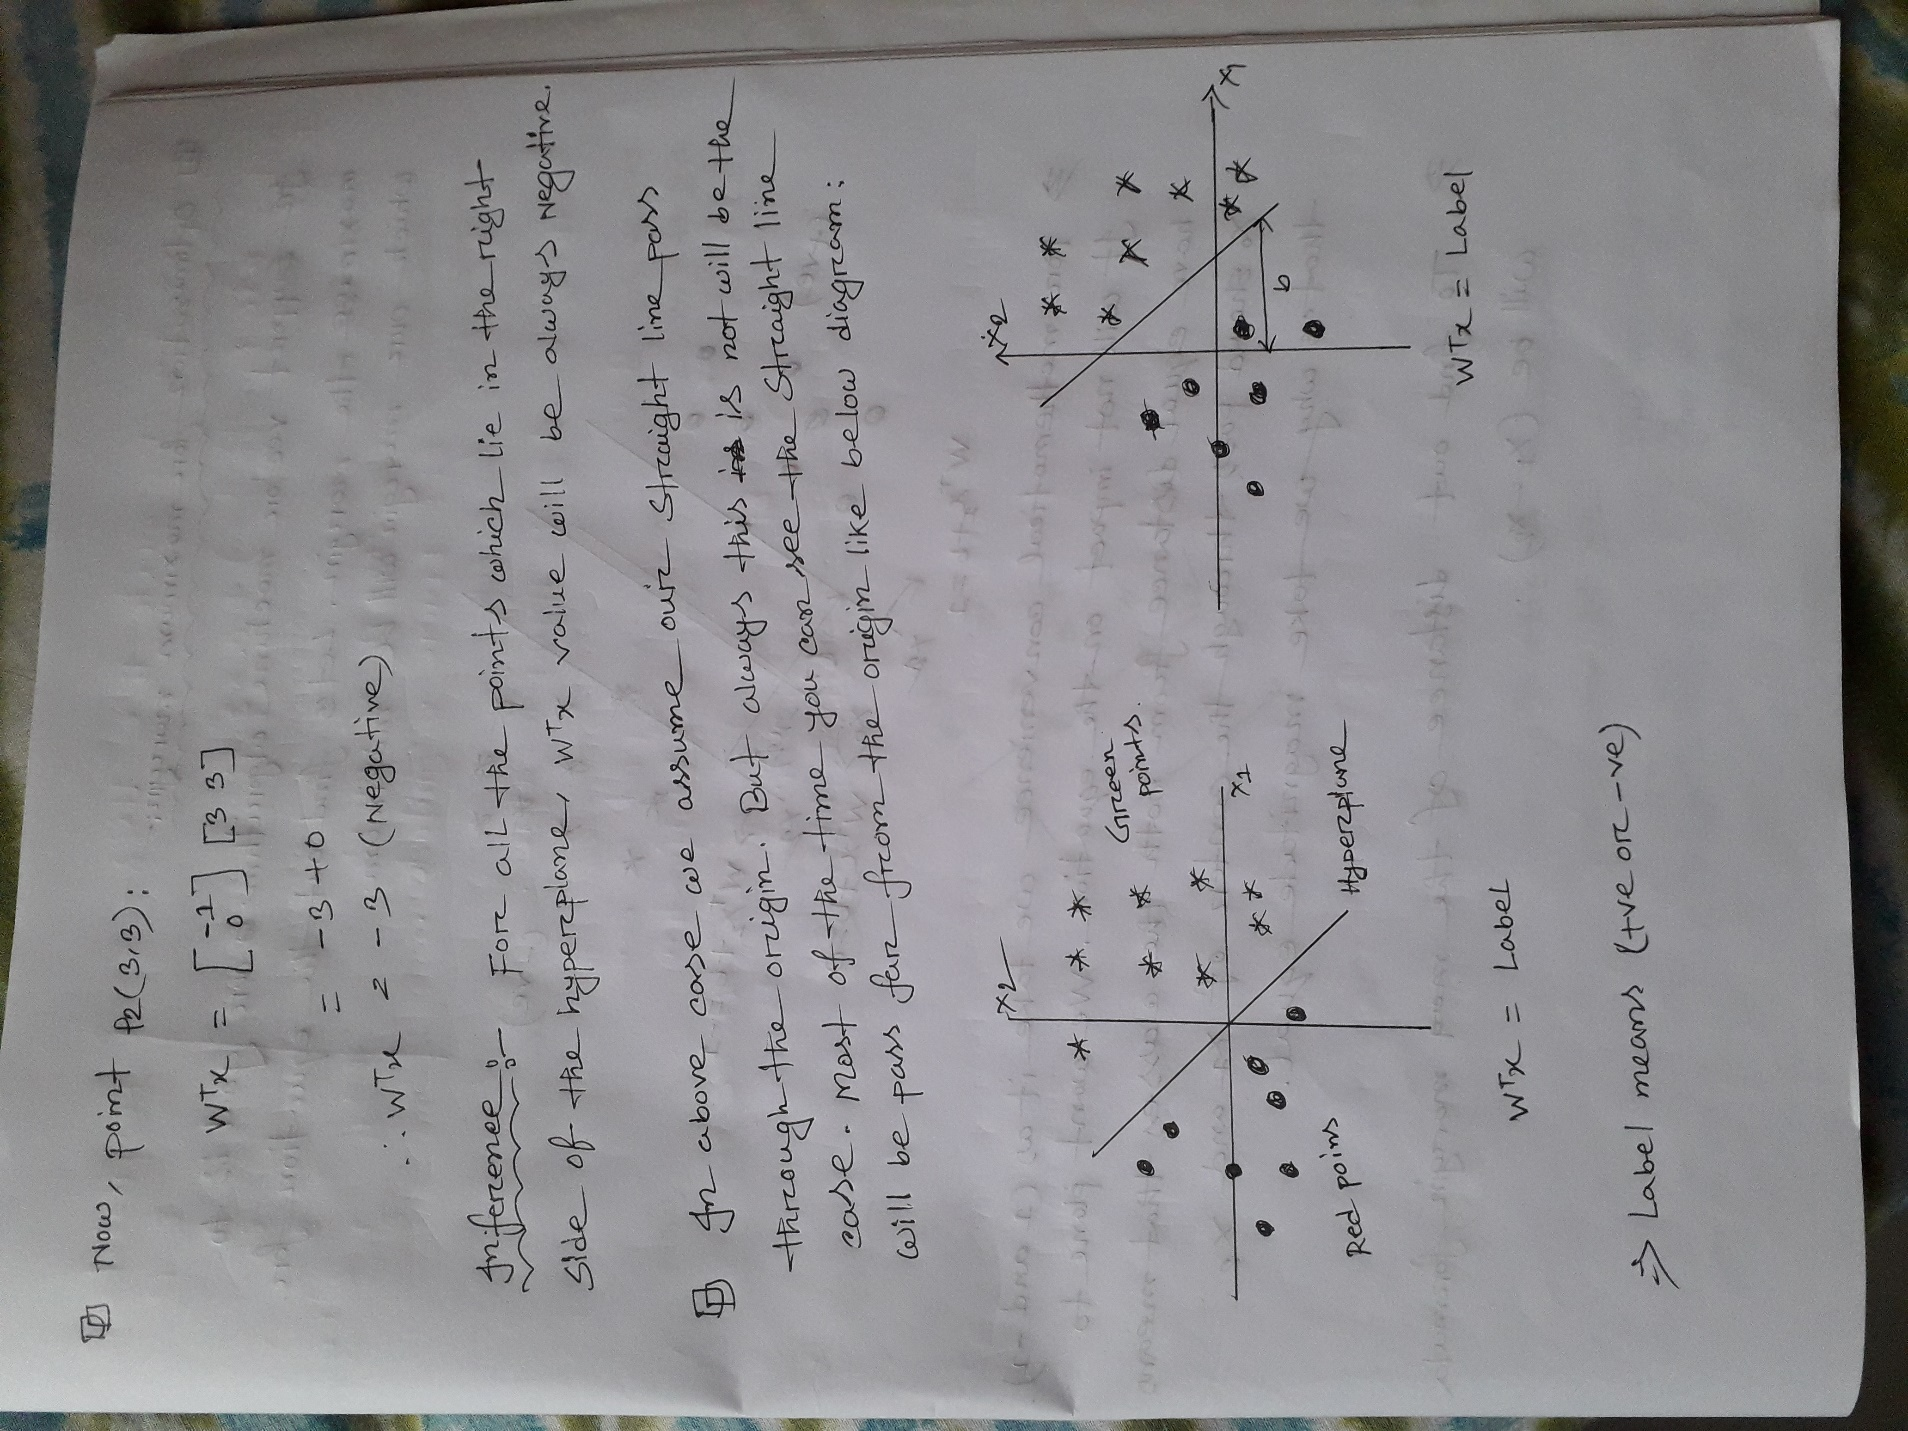 Now, point P2(3,3):
WTx = [-1 0] [3 3]
= -3 + 0
∴ WTx = -3 (Negative)
Inference:- For all the points which lie in the right
side of the hyperplane, WTx value will be always negative.
In above case we assume our straight line pass
through the origin. But always this is not will be the
case. Most of the time you can see the straight line
will be pass far from the origin like below diagram:
x2
Green
points.
x1
Hyperplane
Red poins
WTx = Label
x2
x1
b
WTx = Label
⇒ Label means (+ve or -ve)